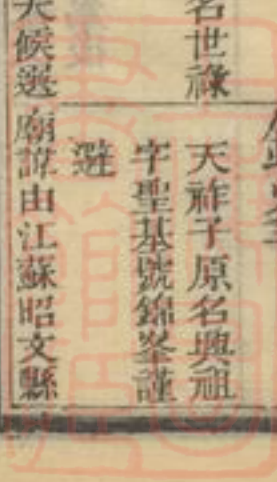 名世祿
天祚子原名興祖
字聖基號錦峯謹
避
天候選
廟諱由江蘇昭文縣